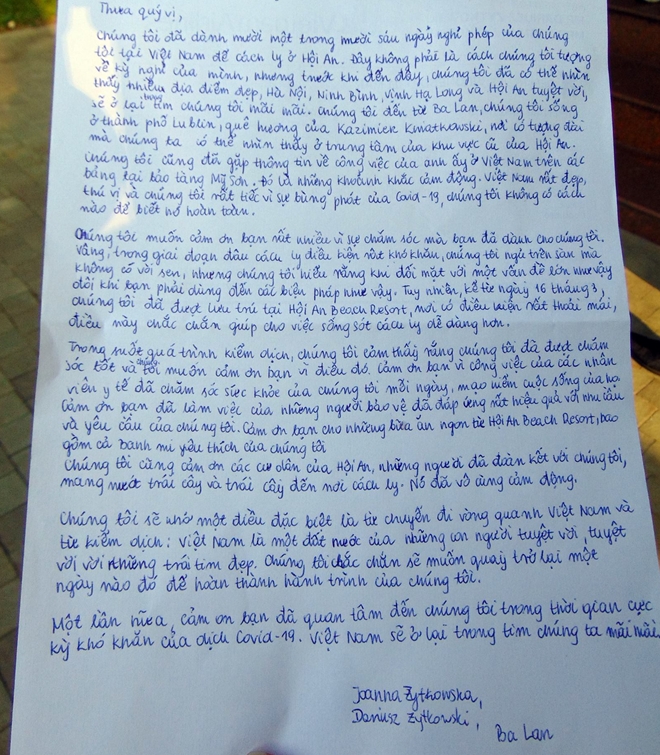 Thưa quý vị,
Chúng tôi đã dành mười một trong mười sáu ngày nghỉ phép của chúng
tôi tại Việt Nam để cách ly ở Hội An. Đây không phải là cách chúng tôi tượng
về kỳ nghỉ của mình, nhưng trước khi đến đây, chúng tôi đã có thể nhìn
thấy nhiều địa điểm đẹp, Hà Nội, Ninh Bình, Vịnh Hạ Long và Hội An tuyệt vời,
sẽ ở lại trong tim chúng tôi mãi mãi. Chúng tôi đến từ Ba Lan, chúng tôi sống
ở thành phố Lublin, quê hương của Kazimierz Kwiatkowski, nơi có tượng đài
mà chúng ta có thể nhìn thấy ở trung tâm của khu vực cũ của Hội An.
Chúng tôi cũng đã gặp thông tin về công việc của anh ấy ở Việt Nam trên các
bảng tại bảo tàng Mỹ Sơn. Đó là những khoảnh khắc cảm động. Việt Nam rất đẹp,
thú vị và chúng tôi rất tiếc vì sự bùng phát của Covid-19, chúng tôi không có cách
nào để biết nó hoàn toàn.
Chúng tôi muốn cảm ơn bạn rất nhiều vì sự chăm sóc mà bạn đã dành cho chúng tôi.
Vâng, trong giai đoạn đầu cách ly điều kiện rất khó khăn, chúng tôi ngủ trên sàn mà
không có vòi sen, nhưng chúng tôi hiểu rằng khi đối mặt với một vấn đề lớn như vậy
đôi khi bạn phải dùng đến các biện pháp như vậy. Tuy nhiên, kể từ ngày 16 tháng 3,
chúng tôi đã được lưu trú tại Hội An Beach Resort, nơi có điều kiện rất thoải mái,
điều này chắc chắn giúp cho việc sống sót cách ly dễ dàng hơn.
Trong suốt quá trình kiểm dịch, chúng tôi cảm thấy rằng chúng tôi đã được chăm
sóc tốt và chúng tôi muốn cảm ơn bạn vì điều đó. Cảm ơn bạn vì công việc của các nhân
viên y tế đã chăm sóc sức khỏe của chúng tôi mỗi ngày, mạo hiểm cuộc sống của họ.
Cảm ơn bạn đã làm việc của những người bảo vệ đã đáp ứng rất hiệu quả với nhu cầu
và yêu cầu của chúng tôi. Cảm ơn bạn cho những bữa ăn ngon từ Hội An Beach Resort, bao
gồm cả bánh mì yêu thích của chúng tôi
Chúng tôi cũng cảm ơn các cư dân của Hội An, những người đã đoàn kết với chúng tôi,
mang nước trái cây và trái cây đến nơi cách ly. Nó đã vô cùng cảm động.
Chúng tôi sẽ nhớ một điều đặc biệt là từ chuyến đi vòng quanh Việt Nam và
từ kiểm dịch: Việt Nam là một đất nước của những con người tuyệt vời, tuyệt
vời với những trái tim đẹp. Chúng tôi chắc chắn sẽ muốn quay trở lại một
ngày nào đó để hoàn thành hành trình của chúng tôi.
Một lần nữa, cảm ơn bạn đã quan tâm đến chúng tôi trong thời gian cực
kỳ khó khăn của dịch Covid-19. Việt Nam sẽ ở lại trong tim chúng ta mãi mãi.
Joanna Żytkowska,
Dariusz Żytkowski,
Ba Lan